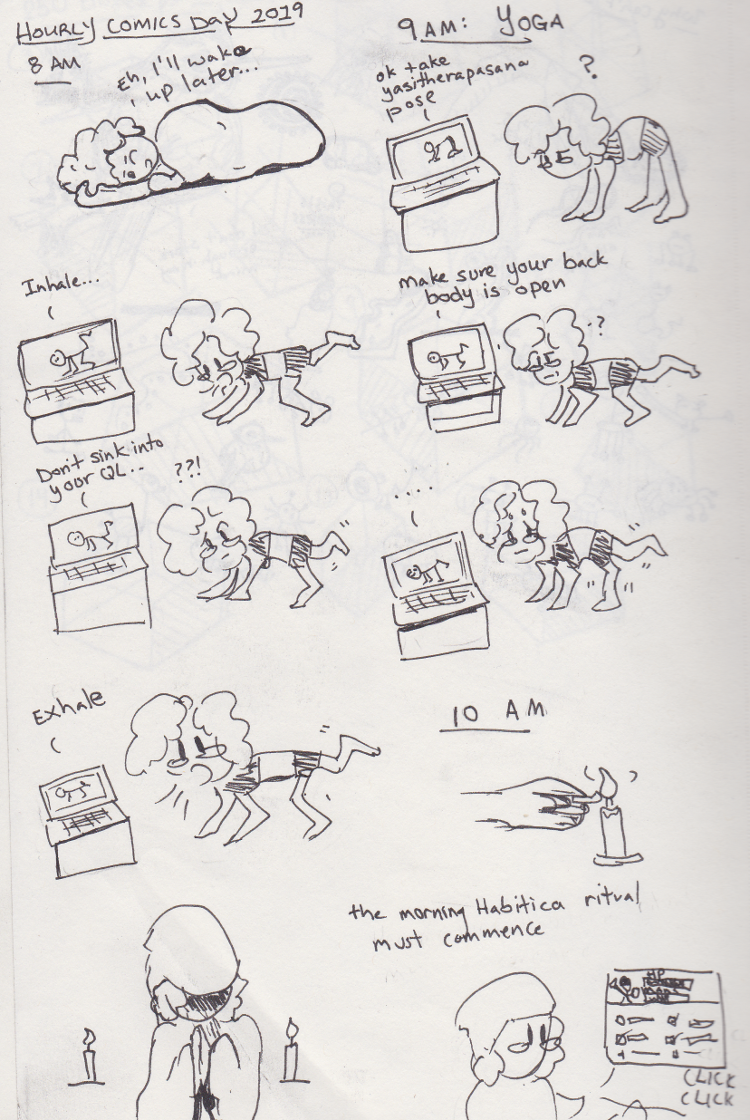 HOURLY COMICS DAY 2019
8 AM
Eh, I'll wake
up later...
9 AM: YOGA
ok take
yasitherapasana
pose
?
Inhale...
make sure your back
body is open
?
Don't sink into
your QL...
??!
....
Exhale
10 AM
the morning Habitica ritual
must commence
HP
CLICK
CLICK